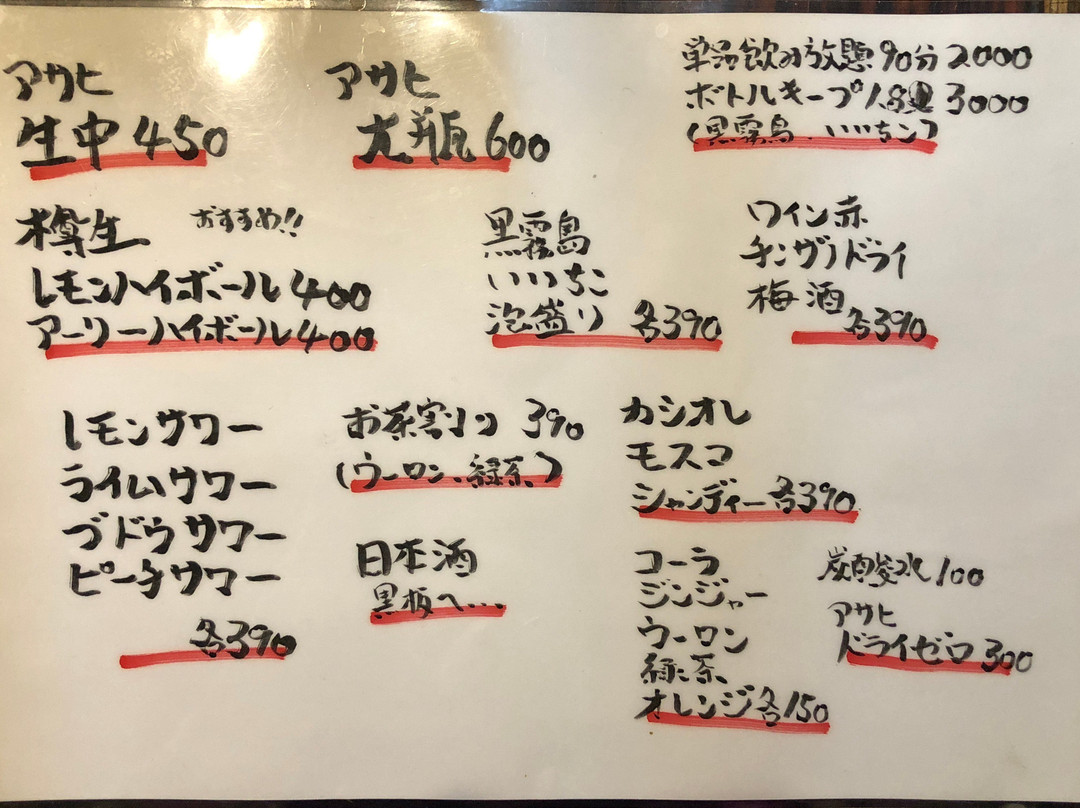 アサヒ
生中 450
アサヒ
大瓶 600
単品飲み放題 90分 2000
ボトルキープ 3000
(黒霧島、いいちこ)
樽生 おすすめ!!
レモンハイボール 400
アーリーハイボール 400
黒霧島
いいちこ
泡盛り 各390
ワイン赤
チンザノドライ
梅酒 各390
レモンサワー
ライムサワー
ブドウサワー
ピーチサワー
各390
お茶割り 390
(ウーロン、緑茶)
日本酒
黒板へ...
カシオレ
モスコ
シャンディー 各390
コーラ
ジンジャー
ウーロン
緑茶
オレンジ 各150
炭酸水 100
アサヒ
ドライゼロ 300